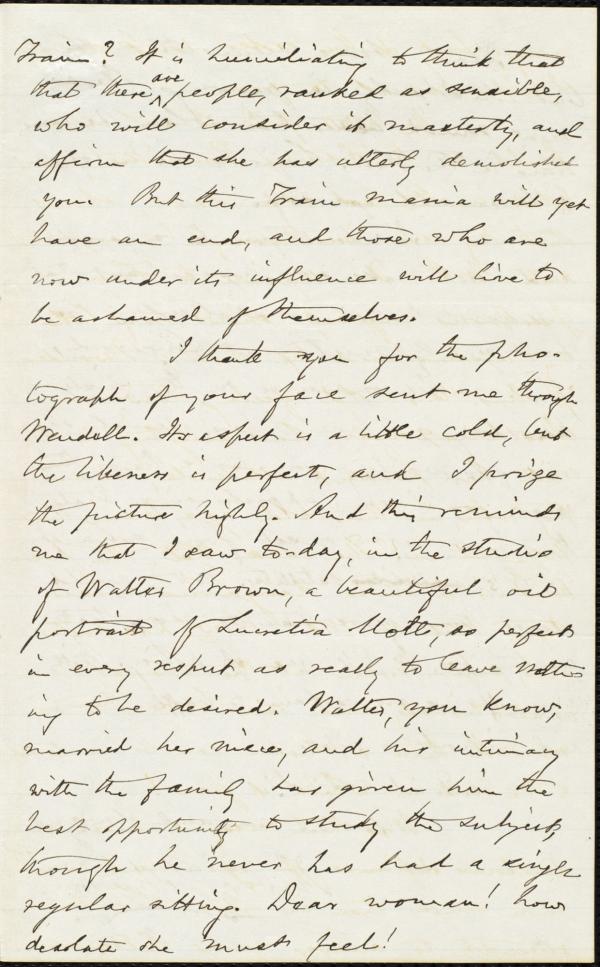 Train? It is humiliating to think that
that there are people, ranked as sensible,
who will consider it masterly, and
affirm that she has utterly demolished
you. But this Train mania will yet
have an end, and those who are
now under its influence will live to
be ashamed of themselves.
I thank you for the pho-
tograph of your face sent me through
Wendell. Its aspect is a little cold, but
the likeness is perfect, and I prize
the picture highly. And this reminds
me that I saw to-day, in the studio
of Walter Brown, a beautiful oil
portrait of Lucretia Mott, so perfect
in every respect as really to leave noth
ing to be desired. Walter, you know,
married her niece, and his intimacy
with the family has given him the
best opportunity to study the subject,
though he never has had a single
regular sitting. Dear woman! how
desolate she must feel!